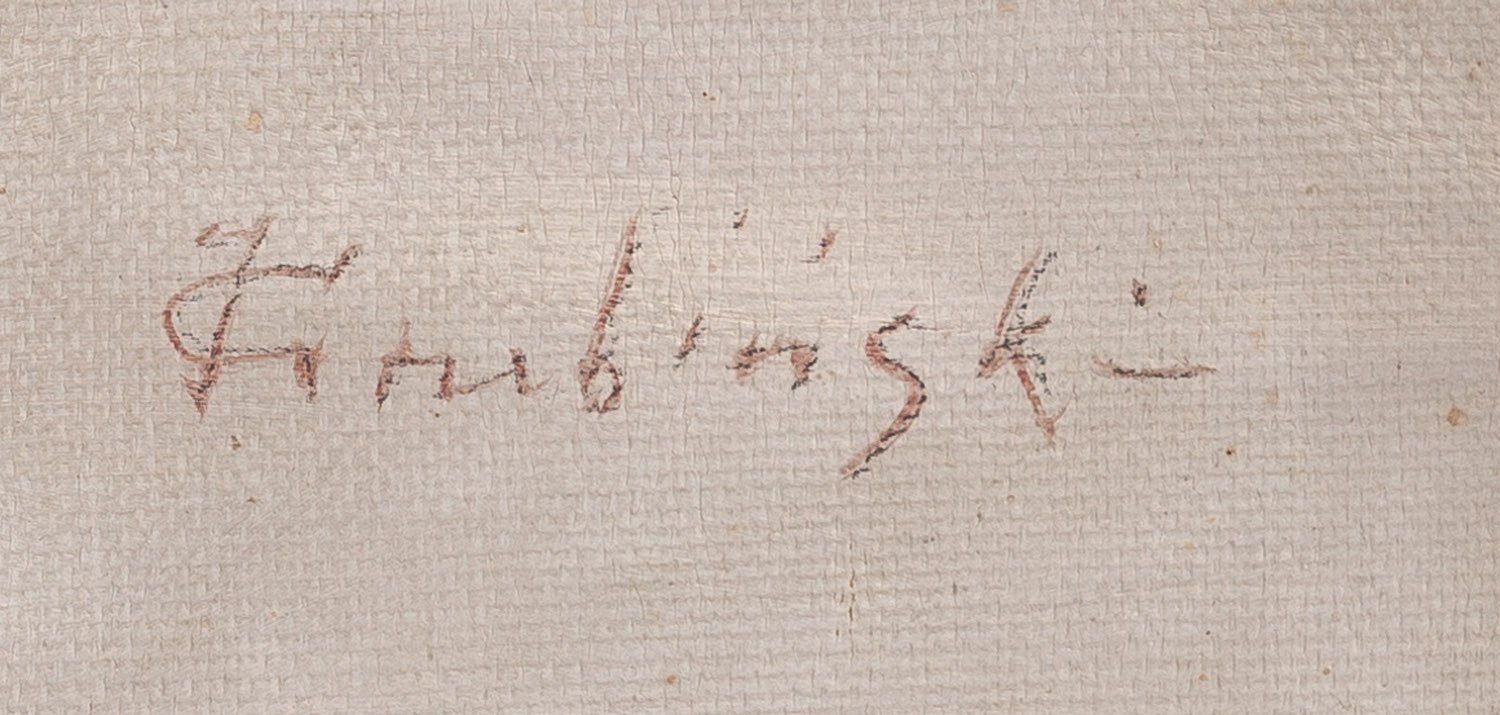 JGrubiński